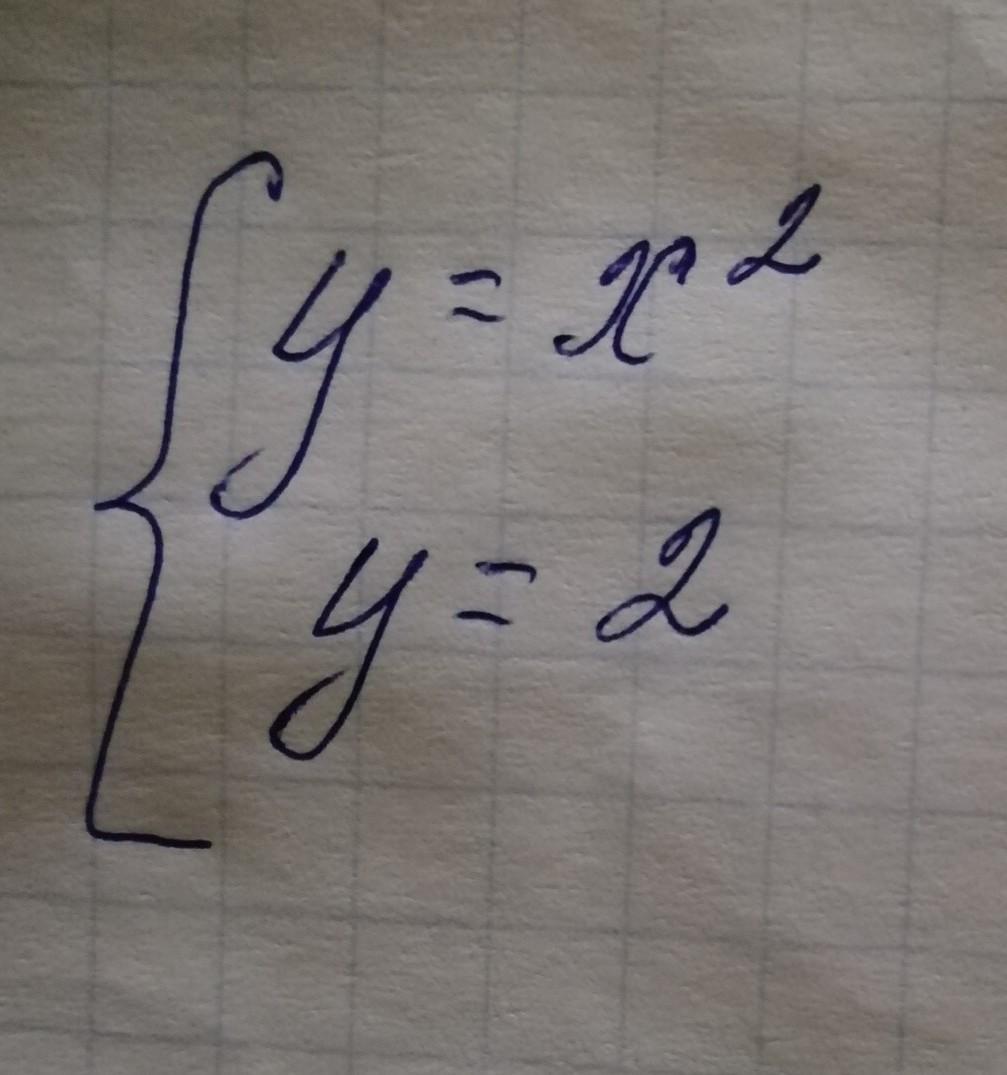 y = x²
y = 2